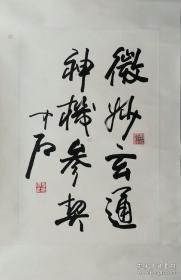 微妙玄通
神機參契